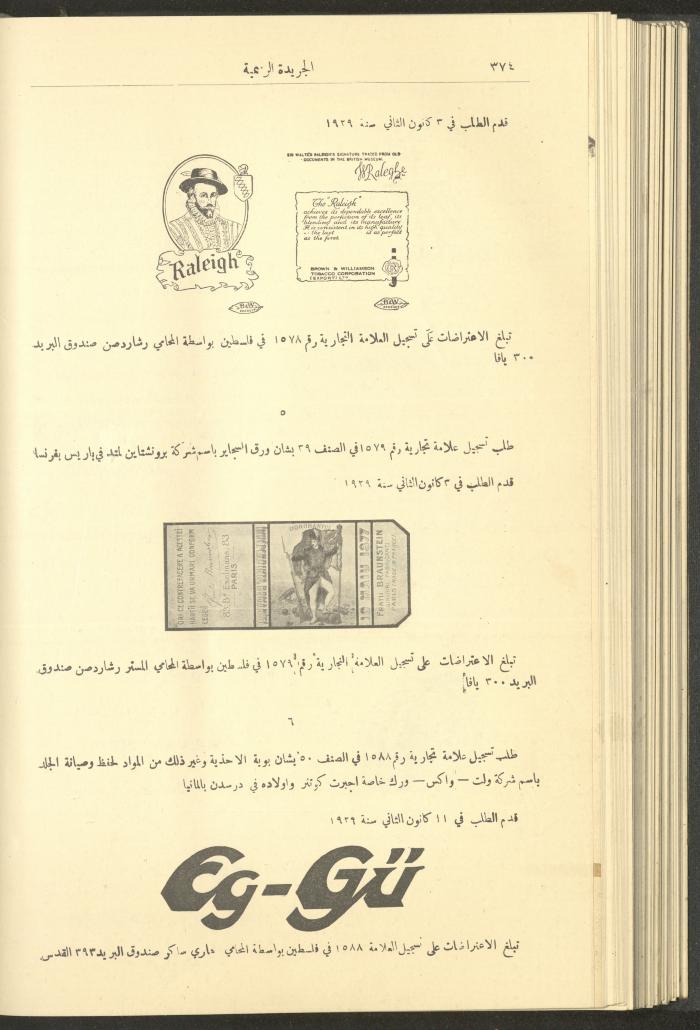 ٣٧٤ الجريدة الرسمية
قدم الطلب في ٣ كانون الثاني سنة ١٩٢٩
SIR WALTER RALEIGH'S SIGNATURE TRACED FROM OLD
DOCUMENTS IN THE BRITISH MUSEUM.
WRalegh
The "Raleigh"
achieves its dependable excellence
from the perfection of its leaf, its
blending and its manufacture
It is consistent in its high quality
the last is as perfect
as the first
BROWN & WILLIAMSON
TOBACCO CORPORATION
(EXPORT) LTD
Raleigh
B&W
B&W
تبلغ الاعتراضات على تسجيل العلامة التجارية رقم ١٥٧٨ في فلسطين بواسطة المحامي رشاردصن صندوق البريد
٣٠٠ يافا
٥
طلب تسجيل علامة تجارية رقم ١٥٧٩ في الصنف ٣٩ بشان ورق السجاير باسم شركة برونشتاين لمتد في باريس بفرنسا
قدم الطلب في ٣ كانون الثاني سنة ١٩٢٩
ORI CE CONTREFACERE A ACESTEI
HARTII SE VA URMARI CONFORM
LEGEI
83, Bd Exelmans, 83
PARIS
DOROBANTUL
10 MAIU 1877
FRATII BRAUNSTEIN
تبلغ الاعتراضات على تسجيل العلامة التجارية رقم ١٥٧٩ في فلسطين بواسطة المحامي المستر رشاردصن صندوق
البريد ٣٠٠ يافا
٦
طلب تسجيل علامة تجارية رقم ١٥٨٨ في الصنف ٥٠ بشان بوية الاحذية وغير ذلك من المواد لحفظ وصيانة الجلد
باسم شركة ولت — واكس — ورك خاصة اجبرت كوتنر واولاده في درسدن بالمانيا
قدم الطلب في ١١ كانون الثاني سنة ١٩٢٩
Eg-Gü
تبلغ الاعتراضات على تسجيل العلامة ١٥٨٨ في فلسطين بواسطة المحامي هاري ساكر صندوق البريد ٣٩٣ القدس